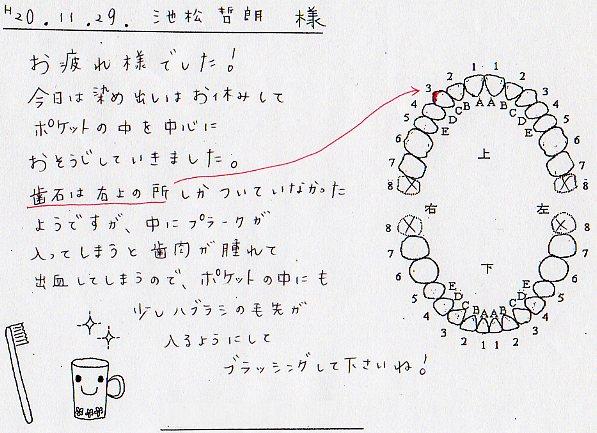 H20.11.29. 池松 哲朗 様
お疲れ様でした!
今日は染め出しはお休みして
ポケットの中を中心に
おそうじしていきました。
歯石は右上の所しかついていなかった
ようですが、中にプラークが
入ってしまうと歯肉が腫れて
出血してしまうので、ポケットの中にも
少しハブラシの毛先が
入るようにして
ブラッシングして下さいね!
3 2 1 1 2 3
4 C B A A B C 4
5 D D 5
6 E E 6
7 上 7
8 8
右 左
8 8
7 下 7
6 E E 6
5 D D 5
4 C B A A B C 4
3 2 1 1 2 3